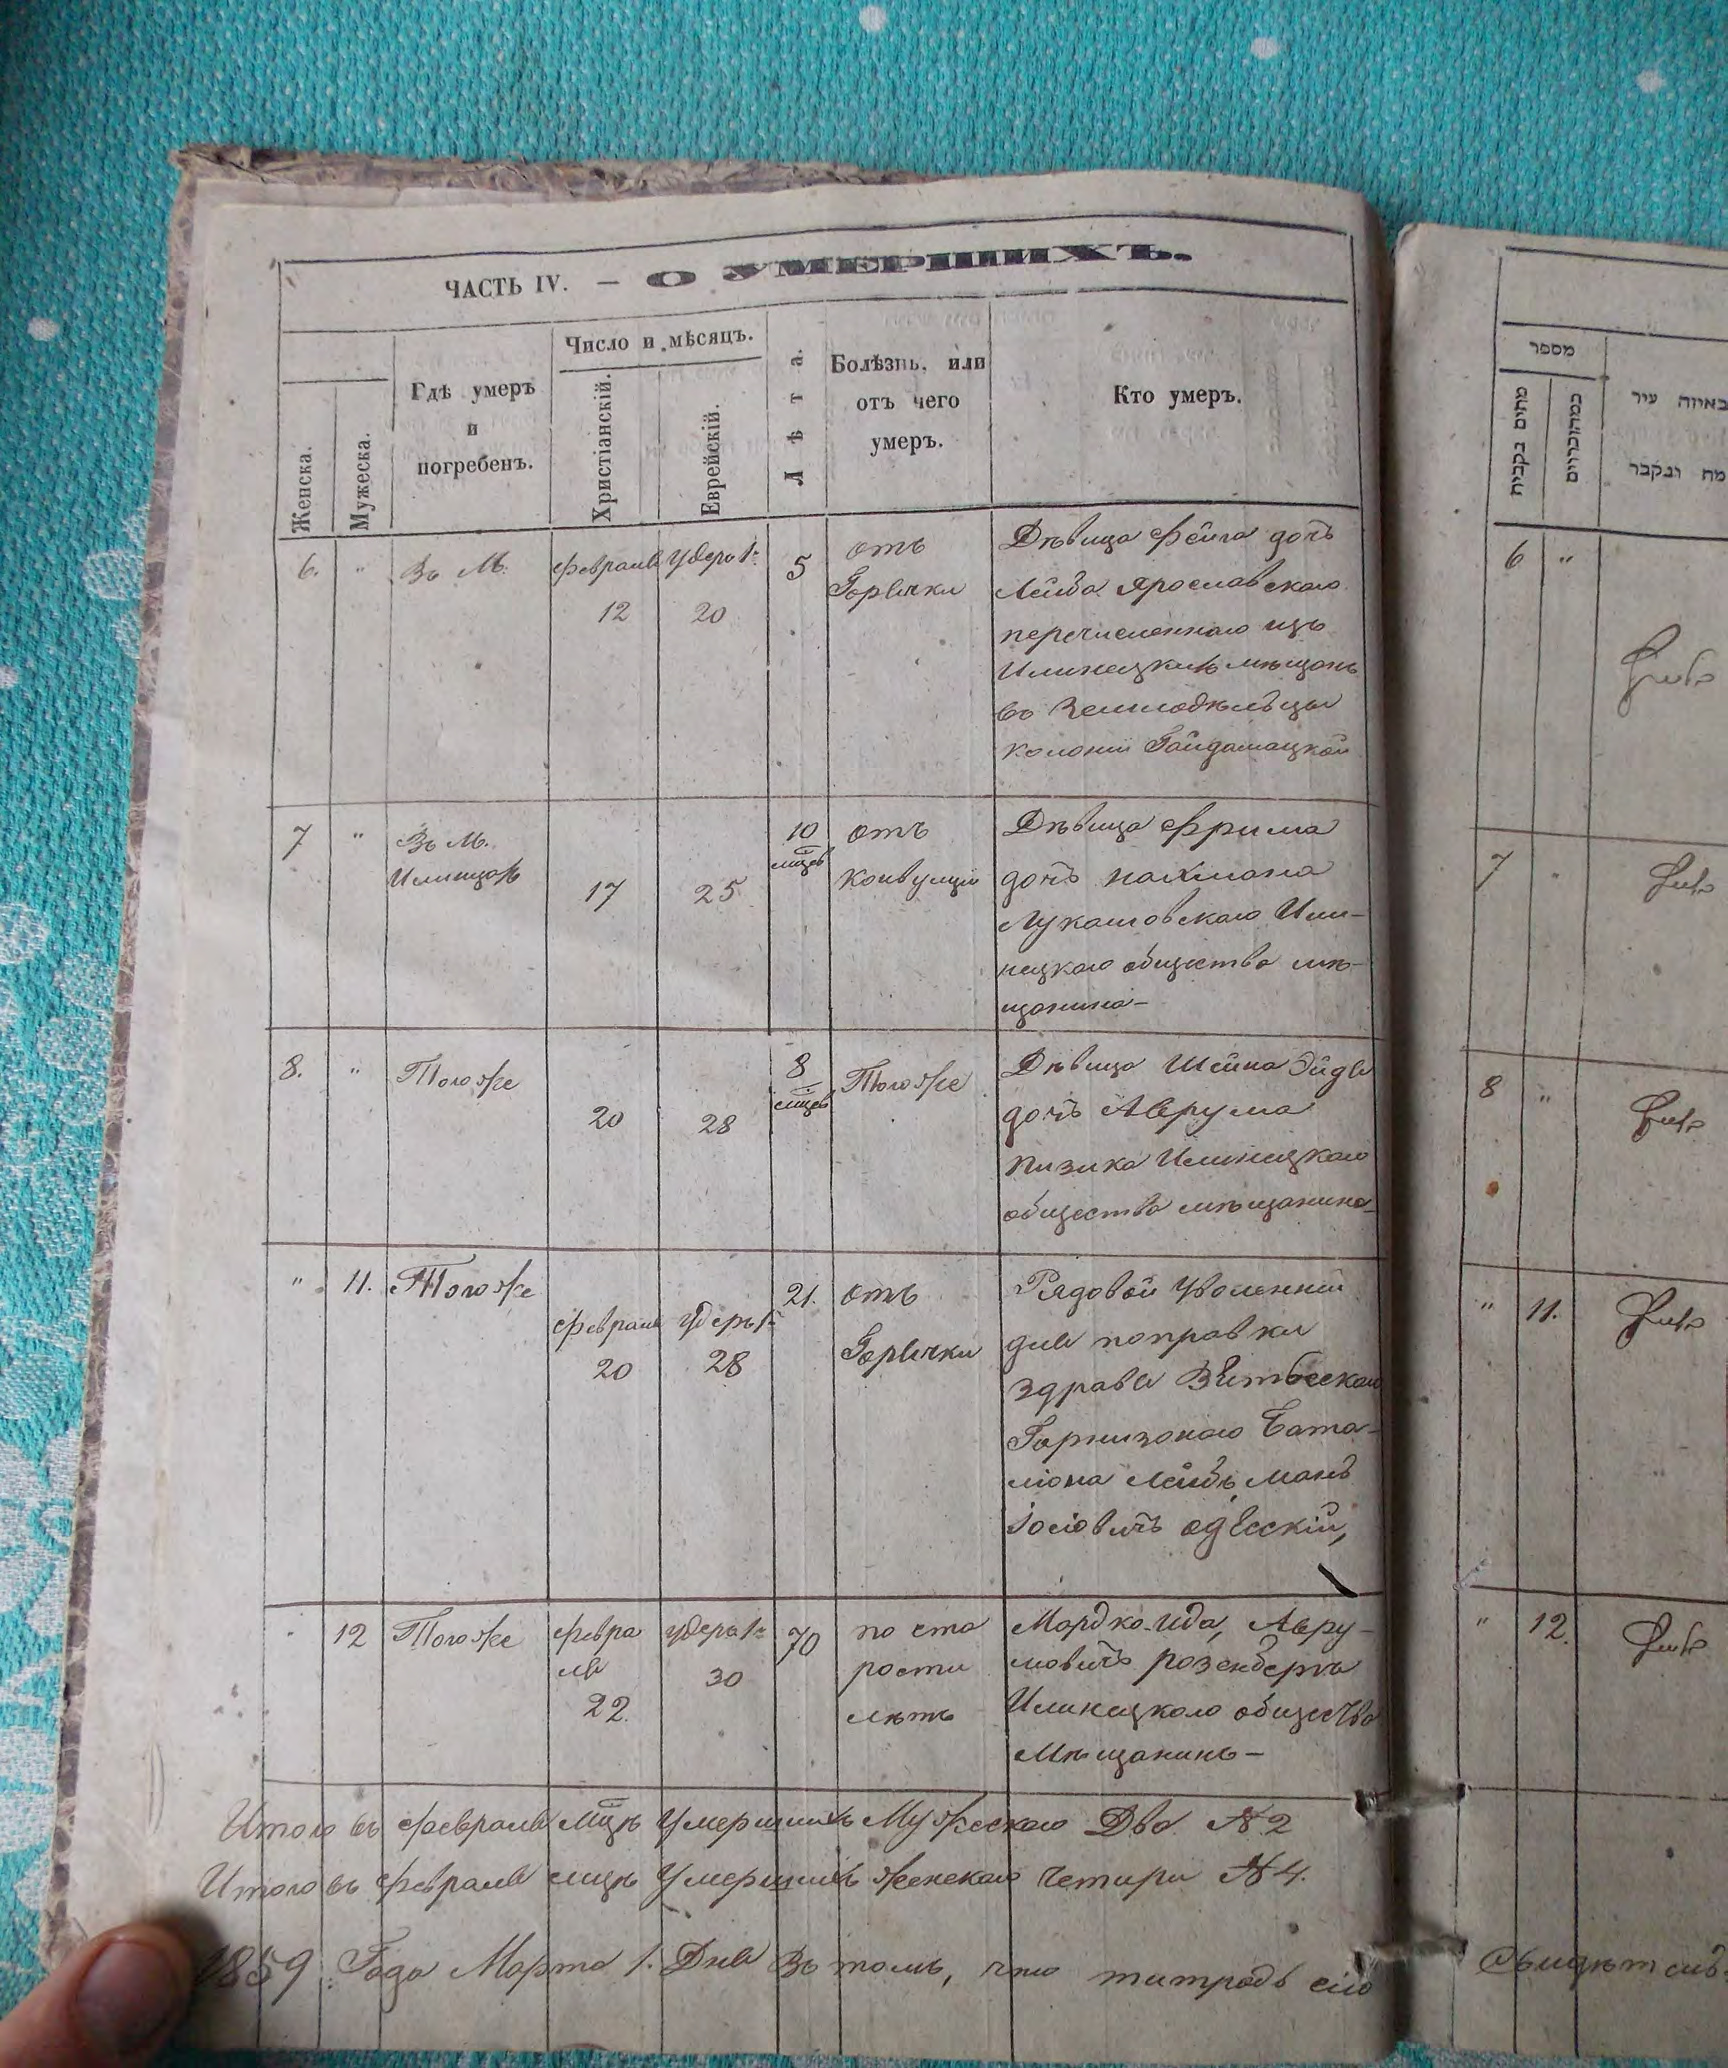 ЧАСТЬ IV. — О УМЕРШИХЪ.
Женска.
Мужеска.
Гдѣ умеръ
и
погребенъ.
Число и мѣсяцъ.
Христіанскій.
Еврейскій.
Лѣта.
Болѣзнь, или
отъ чего
умеръ.
Кто умеръ.
6. " Въ М. февраля 12 20 5
отъ
Горячки
Дѣвица Фейга дочъ
Лейба Ярославскаго
перечисленнаго изъ
Илинецкихъ мѣщанъ
въ Землѣдѣльцы
колоніи Гайдамацкой
7 " Въ М.
Илинцахъ
17 25 10 мцев
отъ
конвулціи
Дѣвица Фрима
дочъ Нахмана
Лукашовскаго Или-
нецкаго общества мѣ-
щанина-
8. " Тогоже 20 28 8 мцев Тогоже
Дѣвица Шейна Эйдя
дочъ Аврума
Пизика Илинецкаго
общества мѣщанина-
" 11. Тогоже февраля 20 28 21.
отъ
Горячки
Рядовой Уволенній
для поправки
здравя Витебскаго
Гарнизонаго Бата-
ліона Лейбъ Манъ
Іосіовичъ Одесскій,
12 Тогоже февра
ля
22. 30 70
по ста
рости
лѣтъ
Мордко-Ида, Авру-
мовичъ Розенбергъ
Илинецкаго общества
Мѣщанинъ-
Итого въ февралѣ мцѣ Умершихъ Мужескаго Два №2
Итого въ февралѣ мцѣ Умершихъ женскаго Четыри №4.
1859 Года Марта 1. Дня Въ томъ, что титрадь сію
מספר
מתים נקבות
באיזה עיר
מת ונקבר
6 "
7
8 "
" 11.
" 12.